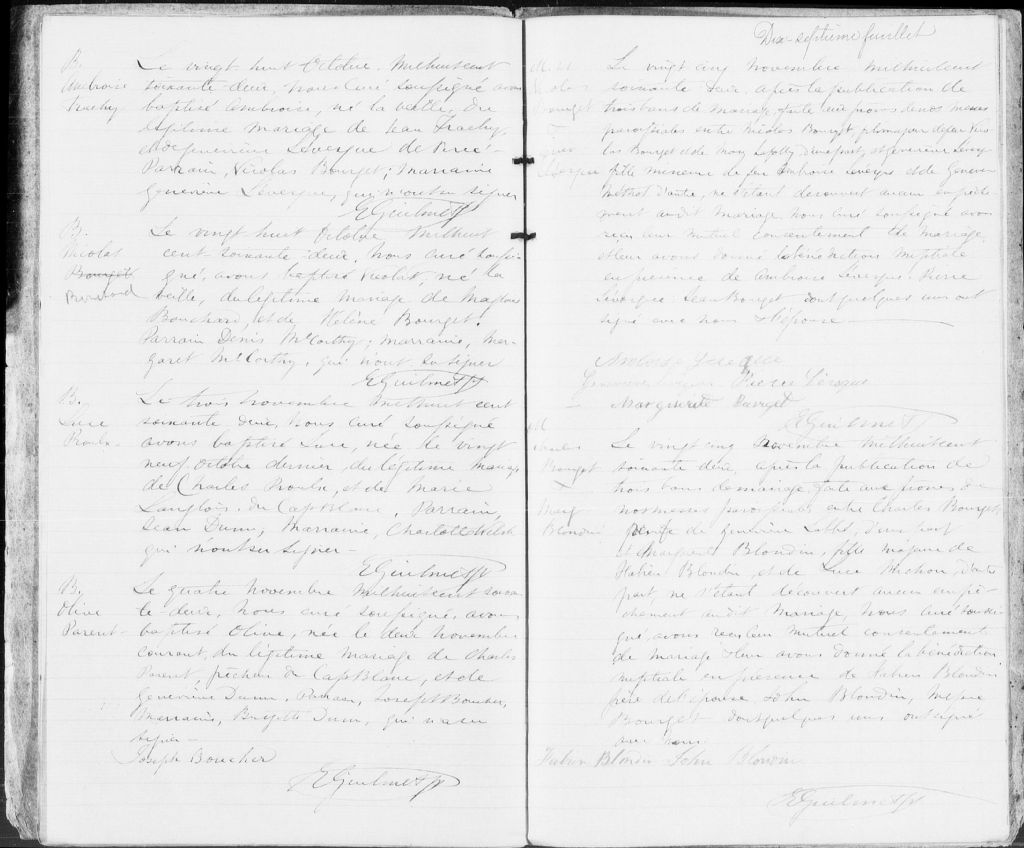 B.
Ambroise
Trachy
Le vingt huit Octobre milhuitcent
soixante-deux, nous Curé soussigné avons
baptisé Ambroise, né la veille, du
légitime mariage de Jean Trachy,
et de Geneviève Lévesque de Percé -
Parrain, Nicolas Bourget; Marraine
Geneviève Lévesque, qui n'ont su signer
E Guilmet Ptr
B.
Nicolas
Bourget
Bouchard
Le vingt huit Octobre milhuit
cent soixante-deux, Nous curé soussi-
gné, avons baptisé Nicolas, né la
veille, du légitime mariage de
Bouchard, et de Hélène Bourget.
Parrain Denis McCarthy; marraine, Mar-
garet McCarthy, qui n'ont su signer
E Guilmet Ptr
B.
Luce
Le trois novembre milhuit cent
soixante deux, Nous Curé soussigné
avons baptisé Luce, née le vingt
neuf Octobre dernier, du légitime mariage
de Charles et de Marie
Langlois, du Cap Blanc, Parrain,
Jean Dunn; Marraine, Charlotte
qui n'ont su signer -
E Guilmet Ptr
B.
Olive
Parent -
Le quatre novembre milhuitcent soixan-
te-deux, Nous curé soussigné, avons
baptisé Olive, née le deux novembre
courant, du légitime mariage de Charles
Parent, pêcheur du Cap Blanc, et de
Geneviève Dunn, Parrain, Joseph Boucher,
Marraine, Brigitte Dunn, qui n'a su
signer -
Joseph Boucher
E Guilmet Ptr
Dix-septième feuillet
Bourget
Le vingt cinq novembre milhuitcent
soixante deux, après la publication de
trois bans de mariage, faite aux prônes de nos messes
paroissiales entre Nicolas Bourget, fils majeur de feu Nico-
las Bourget et de Mary d'une part, et Geneviève Lévesq
fille mineure de feu Ambroise Lévesque et de Geneviève
d'autre, ne s'étant découvert aucun empêche-
ment au dit mariage, Nous curé soussigné avons
reçu leur mutuel consentement de mariage,
et leur avons donné la bénédiction nuptiale
en présence de Ambroise Lévesque, Pierre
Lévesque, Jean Bourget dont quelques uns ont
signé avec nous & l'épouse -
Ambroise
Geneviève Lévesque Pierre Lévesque
Marguerite Bourget
E Guilmet Ptr
M
Charles
Bourget
&
Marg
Blondin
Le vingt cinq novembre milhuitcent
soixante deux, après la publication de
trois bans de mariage, faite aux prônes de
nos messes paroissiales, entre Charles Bourget,
de Geneviève d'une part
et Marguerite Blondin, fille majeure de
Fabien Blondin, et de Luce Michon, d'autre
part, ne s'étant découvert aucun empê-
chement au dit Mariage, Nous curé soussi-
gné, avons reçu leur mutuel consentement
de Mariage & leur avons donné la bénédiction
nuptiale en présence de Fabien Blondin
père de l'épouse, John Blondin,
Bourget dont quelques uns ont signé
avec nous.
Fabien Blondin John Blondin
E Guilmet Ptr